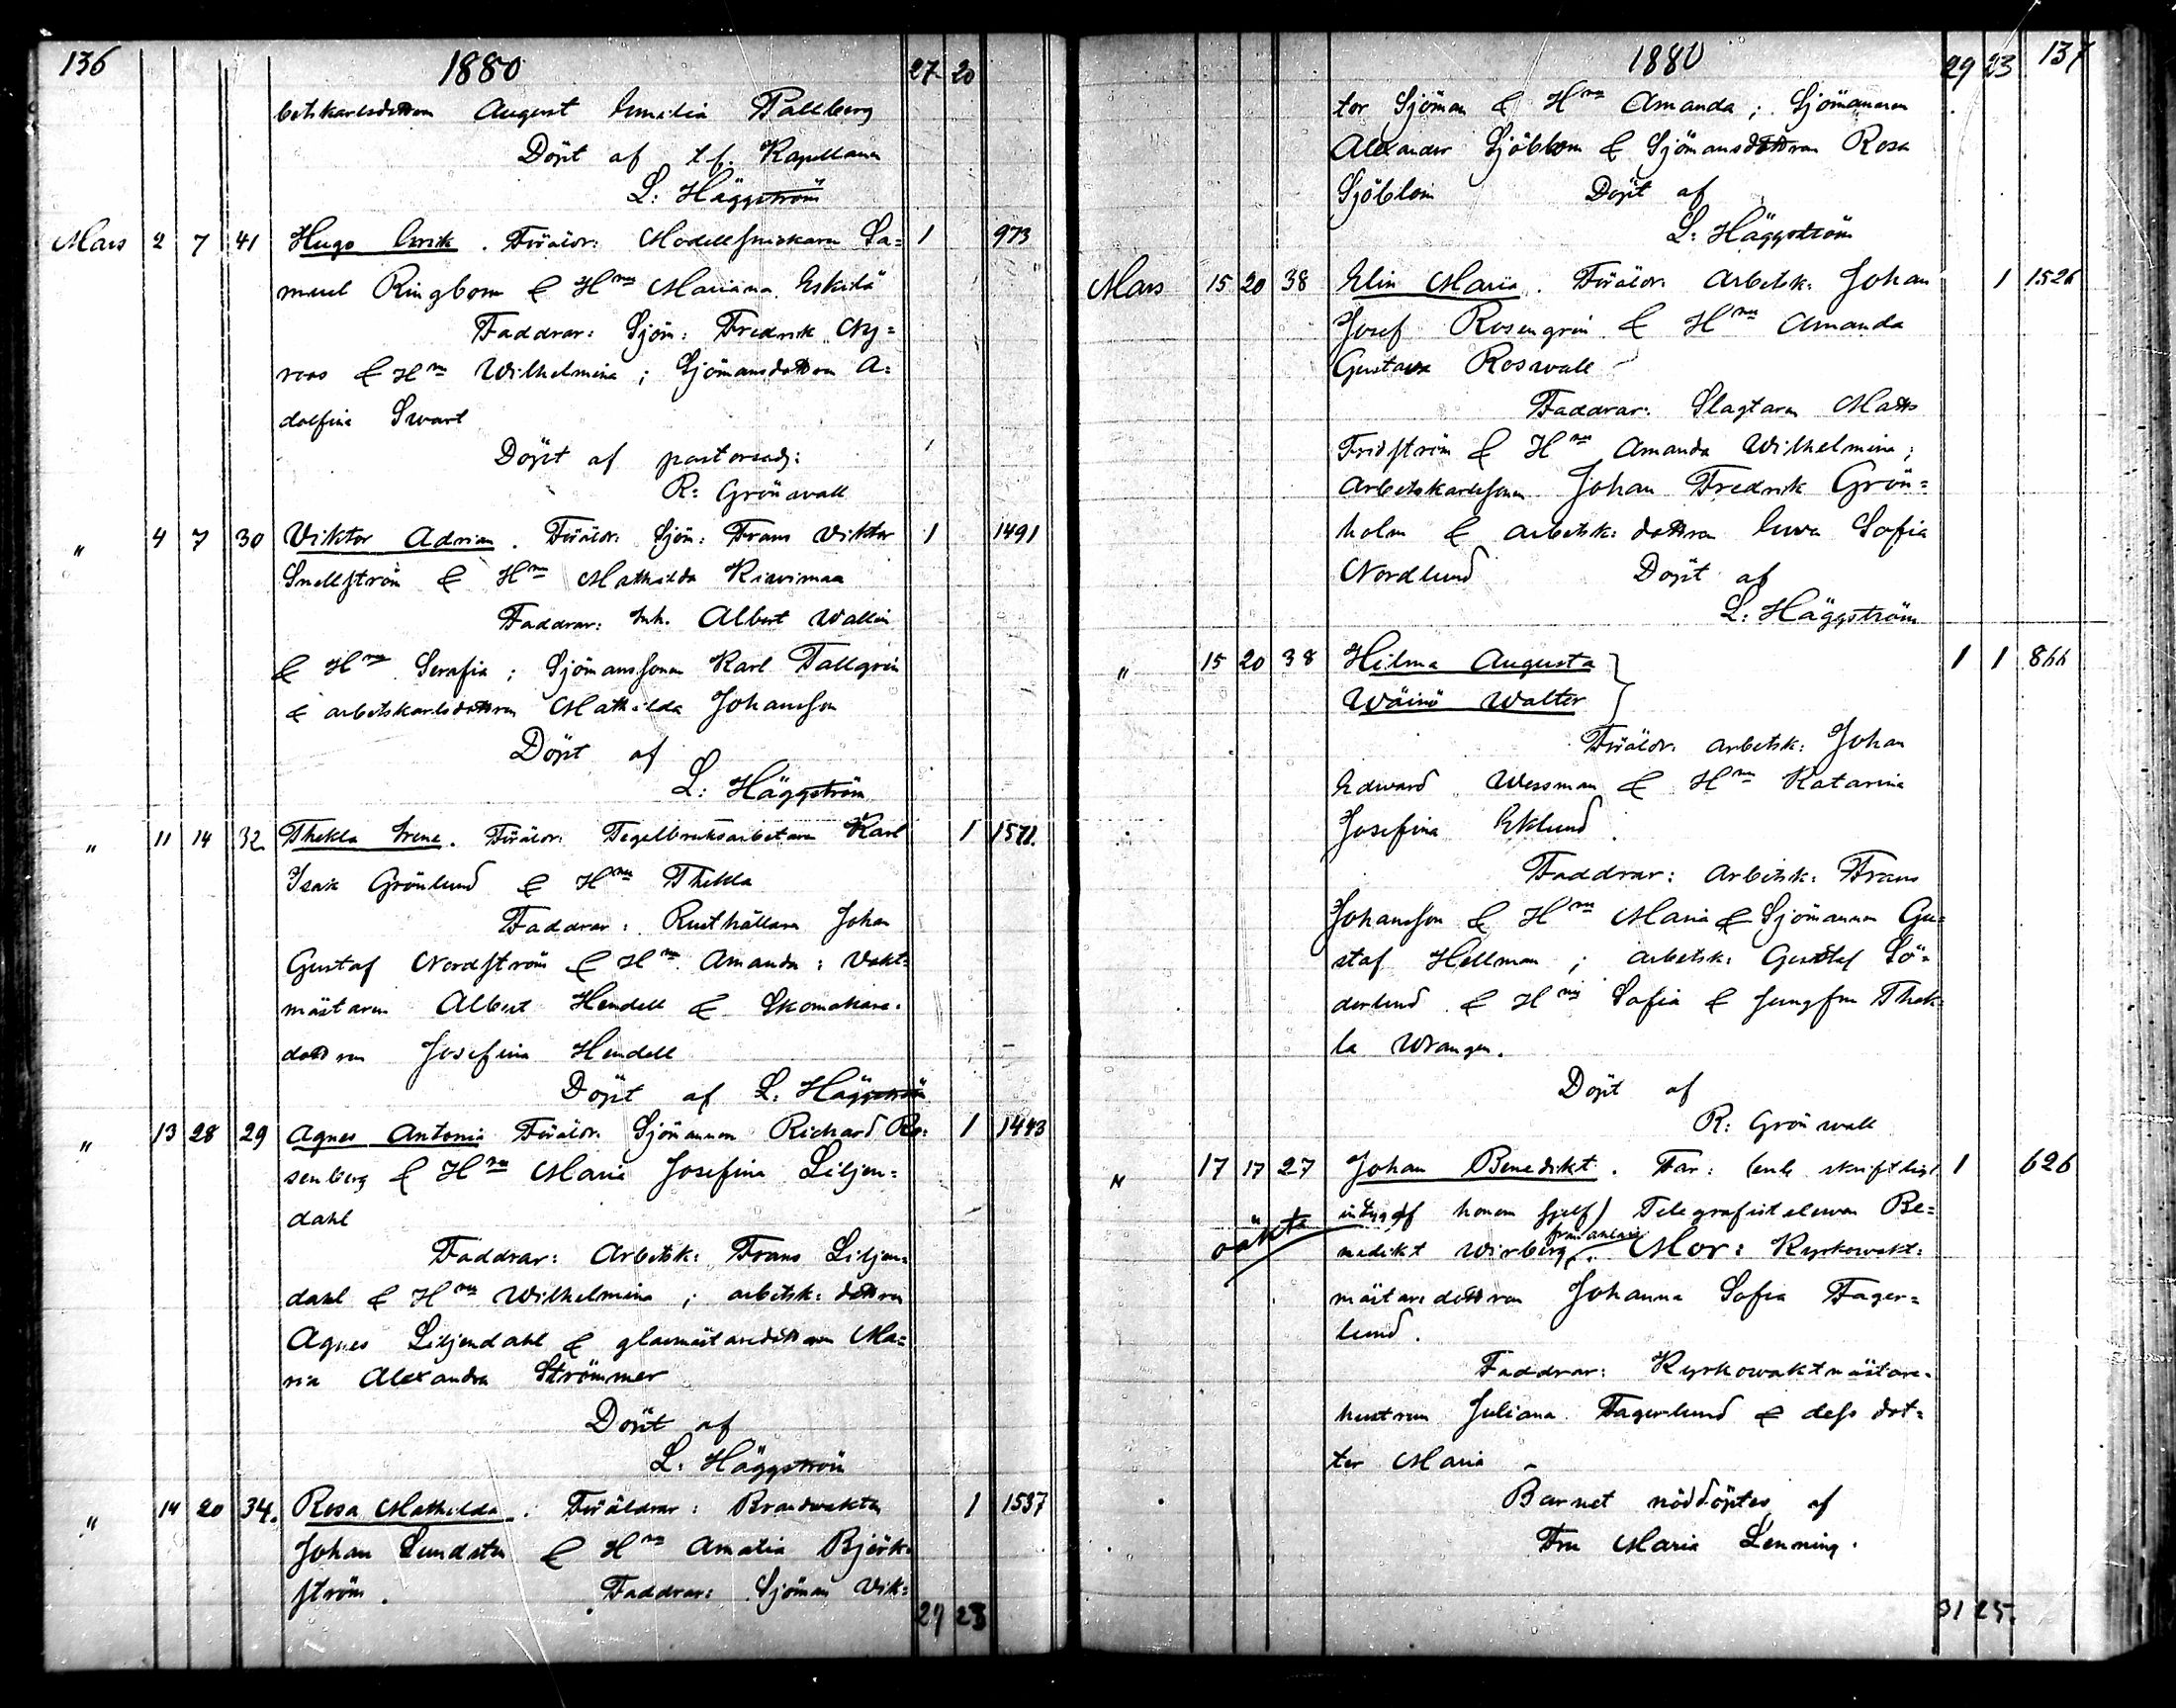 136 1880 27 20
betskarlsdottren August Emilia Pallberg
Döpt af t.f. Kapellanen
L: Häggström
Mars 2 7 41 Hugo Erik. Föräldr: Modellsnickaren Sa= 1 973
muel Ringbom & Hru Mariana Eskilä
Faddrar: Sjöm: Fredrik Ny=
roos & Hru Wilhelmina; Sjömansdottren A=
dolfina Swart
Döpt af pastorsadj:
R: Grönwall
" 4 7 30 Viktor Adrian. Föräldr: Sjöm: Frans Viktor 1 1491
Snellström & Hru Mathilda Kiwimaa
Faddrar: Inh. Albert Wallin
& Hru Serafia; Sjömanssonen Karl Tallgrén
& arbetskarlsdottren Mathilda Johansson
Döpt af
L: Häggström
" 11 14 32 Thekla Irene. Föräldr: Tegelbruksarbetaren Karl 1 1571.
Isak Grönlund & Hru Thekla
Faddrar: Rusthållaren Johan
Gustaf Nordström & Hru Amanda; Vakt=
mästaren Albert Hendell & Skomakare=
dottren Josefina Hendell
Döpt af L: Häggström
" 13 28 29 Agnes Antonia Föräldr: Sjömannen Richard Ro= 1 1443
senberg & Hru Maria Josefina Liljen=
dahl
Faddrar: Arbetsk: Frans Liljen=
dahl & Hru Wilhelmina; arbetsk: dottren
Agnes Liljendahl & glasmästaredottren Ma=
ria Alexandra Strömmer
Döpt af
L: Häggström
" 14 20 34. Rosa Mathilda. Föräldrar: Brandwakten 1 1537
Johan Lundsten & Hru Amalia Björk=
ström. Faddrar: Sjöman Vik=
29 23
1880 29 23 137
tor Sjöman & Hru Amanda; Sjömannen
Alexander Sjöblom & Sjömansdottren Rosa
Sjöblom Döpt af
L: Häggström
Mars 15 20 38 Elin Maria. Föräldr: Arbetsk: Johan 1 1526
Josef Rosengrén & Hru Amanda
Gustava Roswall
Faddrar: Slagtaren Matts
Fridström & Hru Amanda Wilhelmina;
Arbetskarlssonen Johan Fredrik Grön=
holm & arbetsk: dottren Ewa Sofia
Nordlund Döpt af
L: Häggström
" 15 20 38 Hilma Augusta 1 1 866
Wäinö Walter
Föräldr: arbetsk: Johan
Edward Wessman & Hru Katarina
Josefina Eklund.
Faddrar: Arbetsk: Frans
Johansson & Hru Maria & Sjömannen Gu=
staf Hellman; arbetsk: Gustaf Sö=
derlund & Hru Sofia & Jungfru Thek=
la Wrangen.
Döpt af
R: Grönwall
" 17 17 27 Johan Benedikt. Far: (enl. skriftligt 1 626
oäkta intyg af honom sjelf) Telegrafisteleven Be=
nedikt Wirberg. Mor: Kyrkowakt=
mästaredottren Johanna Sofia Fager=
lund.
Faddrar: Kyrkowaktmästare=
hustrun Juliana Fagerlund & dess dot=
ter Maria
Barnet nöddöptes af
Fru Maria Lenning.
31 25.